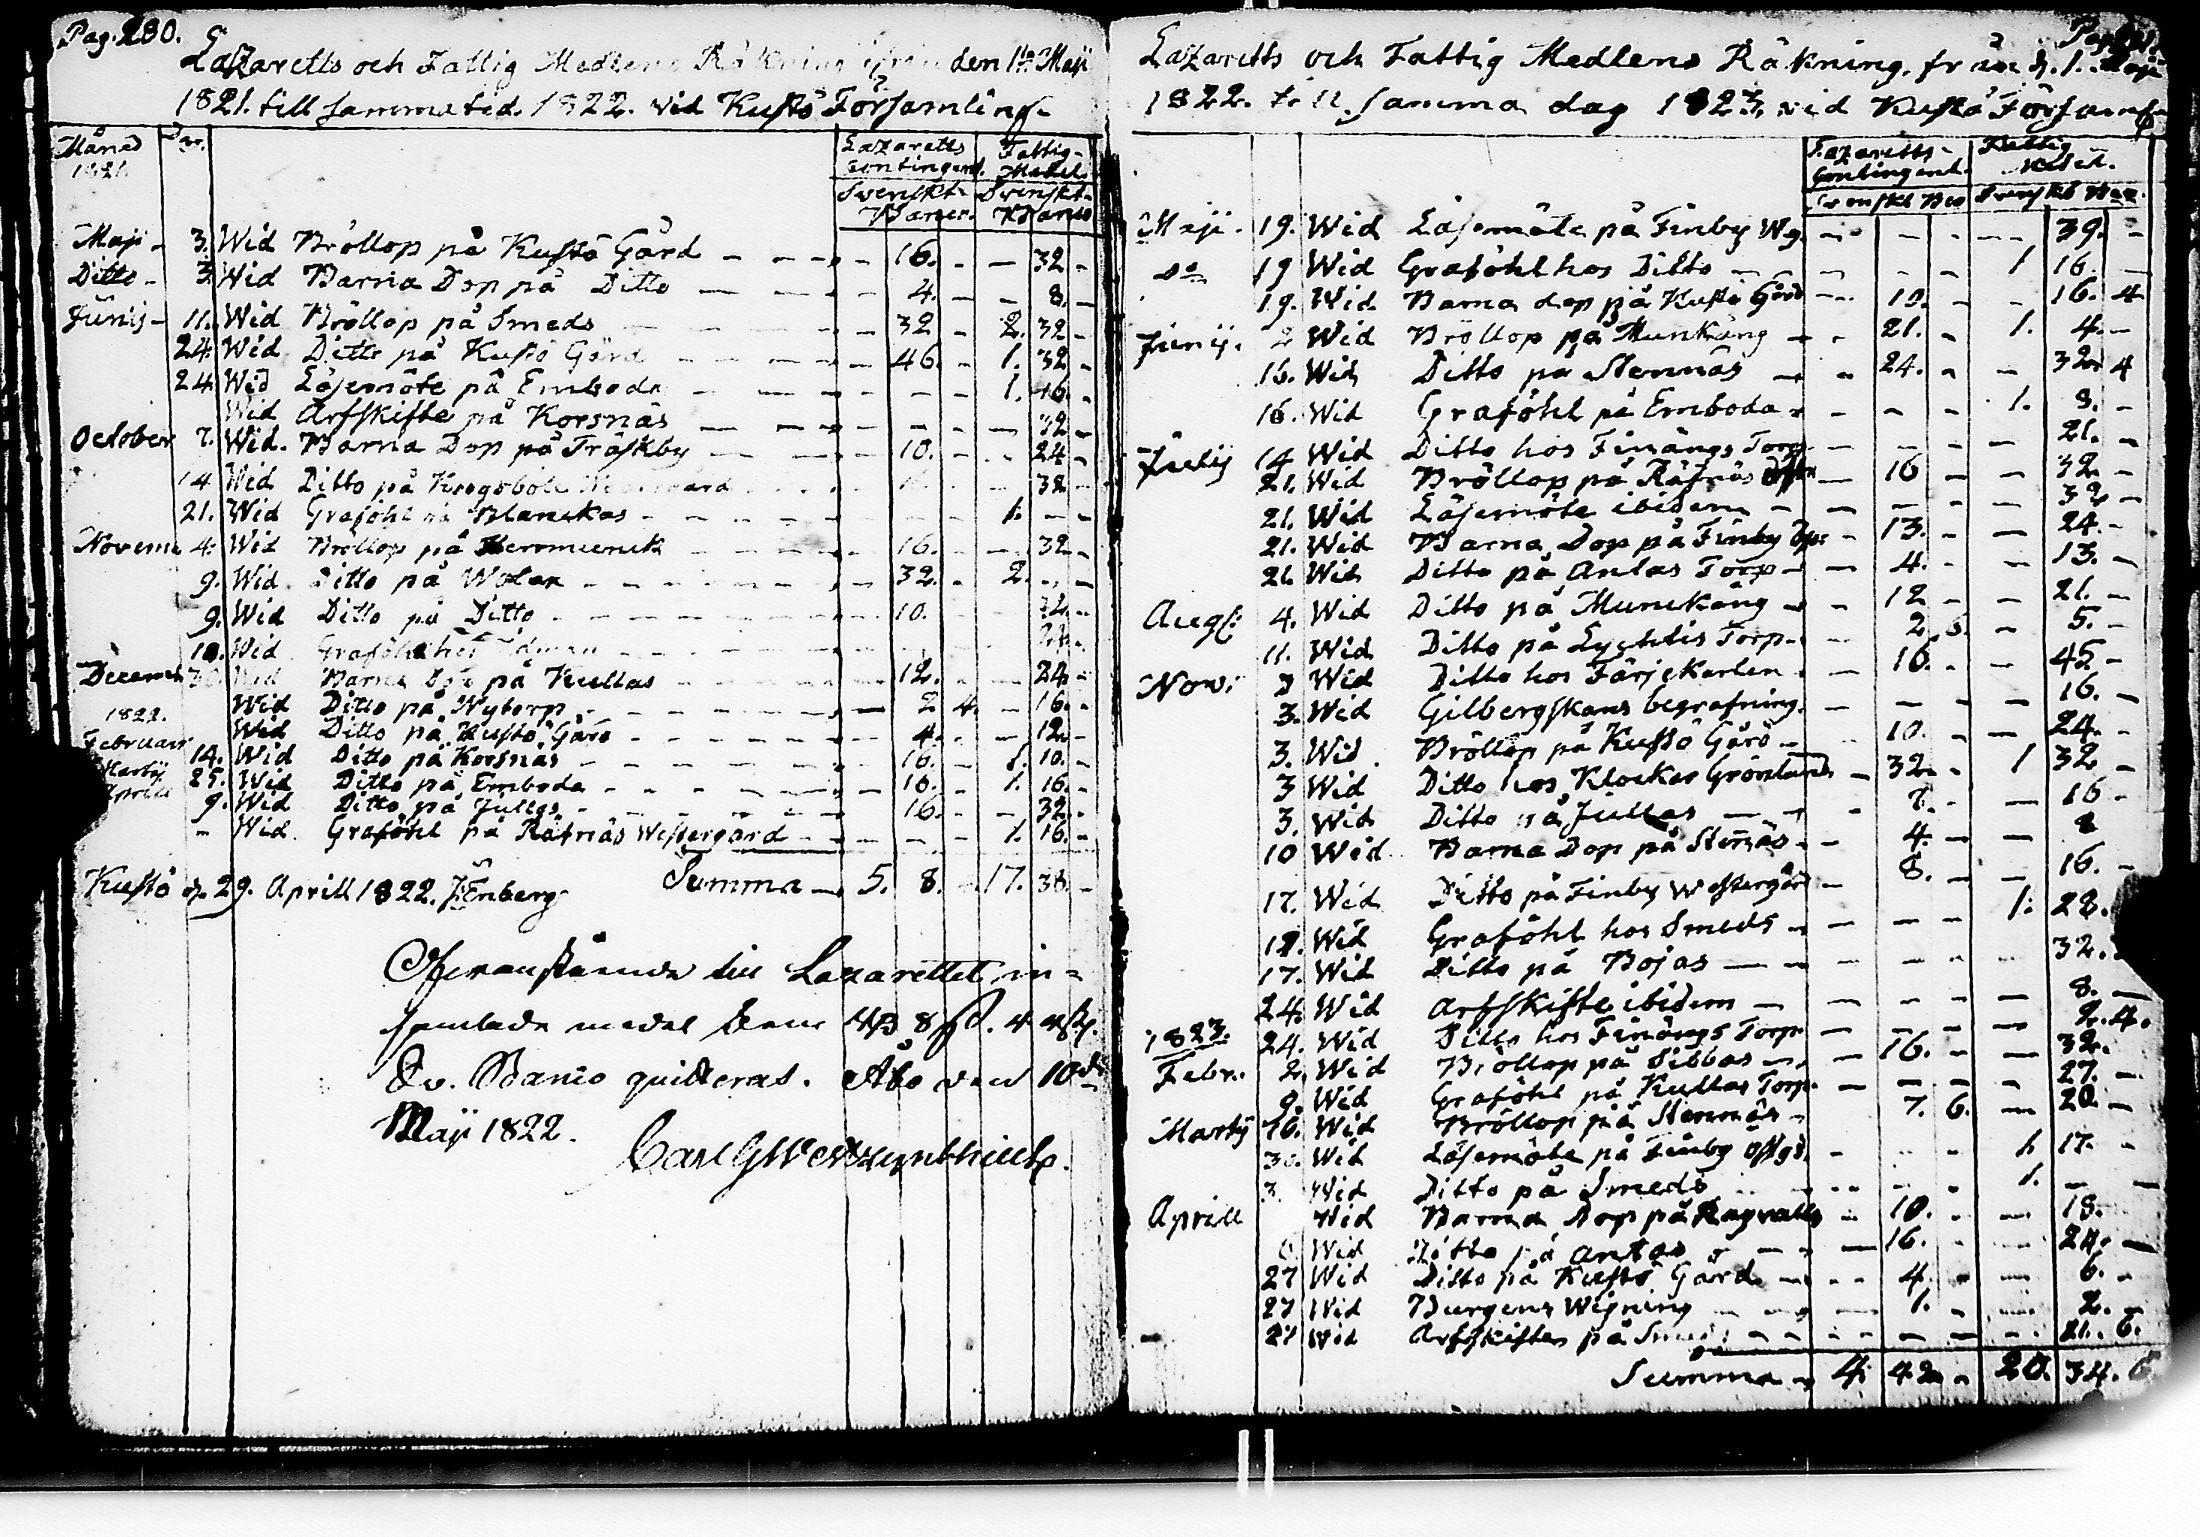 Pag. 280.
Lazaretts och Fattig Medlens Räkning ifrån den 1ta Maji
1821. till samma tid. 1822. vid Kustö Församling.
Månad
1821.
Lazaretts Contingent. Fattig-Medel.
Svenskt Banco. Svenskt Banco
Maji - 3. Wid Bröllop på Kustö Gård - - 16. - - 32 -
Ditto - 3. Wid Barna Dop på Ditto - - 4. - - 8. -
Junij - 11. Wid Bröllop på Smeds - 32 - 2. 32 -
24. Wid Ditto på Kustö Gård - - 46. - 1. 32 -
24 Wid Läsemöte på Emboda - - - 1. 46. -
Wid Arfskifte på Korsnäs - - - - 32 -
October 7. Wid. Barna Dop på Träskby - - 10. - - 24 -
14 Wid Ditto på Krogsböle - 32 -
21. Wid Graföhl på Blanckas - - - 1. - -
Novem 4. Wid Bröllop på Herrmunck - - 16. - - 32 -
9. Wid. Ditto på Wolax - - 32. - 2. - -
9. Wid Ditto på Ditto - - 10. -
10. Wid. Graföhl hos
Decemb. 30. Wid Barna Dop på Kullas - - 12. - - 24 -
Wid Ditto på Nytorp - - 2 4. - 16. -
1822.
Wid Ditto på Kustö Gård - - 4. - - 12. -
Februari 14. Wid Ditto på Korsnäs - - 16. - 1. 10. -
Martij 25. Wid Ditto på Emboda - - 16. - 1. 16. -
Aprill 9. Wid Ditto på Jullas - - 16. - - 32. -
- Wid. Graföhl på Räfnäs Westergård - - - 1. 16. -
Kustö d. 29. Aprill 1822. J. Enberg. Summa - 5. 8. - 17. 38. -
Ofvanstående till Lazarettet in=
samlade medel 8 4
Sv. Banco quitteras. Åbo den 10de
Maji 1822.
Lazaretts och Fattig Medlens Räkning, från d. 1. Maji
1822. till samma dag 1823, vid Kustö Församl.
Lazaretts-Contingent. Fattig Medel.
Svenskt Bco Svenskt Bco.
Maji. 19. Wid Läsemöte på Finby Wg. - - - - 39. -
do 19 Wid Graföhl hos Ditto - - - 1 16. -
19. Wid Barna dop på Kustö Gård - 10. - - 16. 4
Junij. 2 Wid Bröllop på Munkäng - - 21. - 1. 4. -
16. Wid Ditto på Stennäs - - 24. - - 32 4
16. Wid Graföhl på Emboda - - - - 1. 8. -
Julij 14 Wid Ditto hos Finängs Torp - - - - 21. -
21. Wid Bröllop på Räfnäs - 16 - - 32. -
21. Wid Läsemöte ibidem - - - - - 32 -
21. Wid Barna Dop på Finby - 13. - - 24. -
21 Wid Ditto på Antas Torp - - 4. - - 13. -
Augs: 4. Wid Ditto på Munckäng - - 12 - - 21. -
11. Wid Ditto på Lychtis Torp - - 2. 5. - 5. -
Nov. 3 Wid Ditto hos Färjekarlen - 16. - - 45 -
3. Wid Gilbergskans begrafning. - - - - 16. -
3. Wid. Bröllop på Kustö Gård - - 10. - - 24. -
3 Wid Ditto hos Klockar Grönlund - 32 - 1 32 -
3. Wid Ditto på Jullas - - 8. - - 16 -
10 Wid Barna Dop på Stennäs - - 4. - - 8
17. Wid Ditto på Finby Westergård - 8. - - 16. -
Wid Graföhl hos Smeds - - - - 1. 22.
17. Wid Ditto på Bojas - - - - 32.
24. Wid Arfskifte ibidem - - - - - 8. -
1823. 24. Wid Ditto hos Finängs Torp - - - - 2. 4.
Febr. 2 Wid Bröllop på Sibbas - - 16. - - 32. -
9. Wid Graföhl på Kullas Torp. - - - - 27. -
Martij 16. Wid Bröllop på Stennäs - 7. 6. - 20. -
30. Wid Läsemöte på Finby - - - 1. 17. -
3. Wid Ditto på Smeds - - - 1. - -
Aprill Wid Barna Dop på Ragvalls - 10. - - 18. -
6 Wid Ditto på Antas - - 16. - - 24. -
27 Wid Ditto på Kustö Gård - - 4. - - 6. -
27 Wid Burgens Wigning - - 1. - - 2. -
27 Wid Arfskiftes på Smeds - - - - - 21. 6.
Summa - 4. 42 - 20. 34. 6